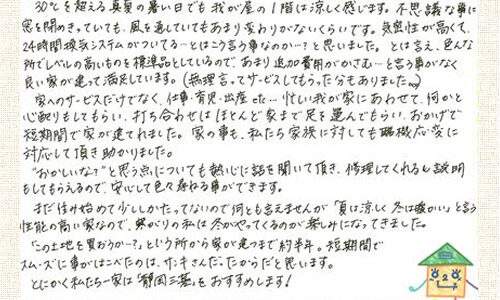 30℃を超える真夏の暑い日でも我が屋の1階は涼しく感じます。不思議な事に
窓を閉めきっていても、風を通していてもあまり変わりがないくらいです。気密性が高くて、
24時間換気システムがついてる…とはこう言う事なのか…?と思いました。とは言え、色んな
所でレベルの高いものを標準品としているので、あまり追加費用がかさむ…と言う事がなく
良い家が建って満足しています。(無理言ってサービスしてもらった分もありました。)
家へのサービスだけでなく、仕事・育児・出産 etc… 忙しい我が家にあわせて、何かと
心配りもしてもらい、打ち合わせはほとんど家まで足を運んでもらい、おかげで
短期間で家が建てれました。家の事も、私たち家族に対しても臨機応変に
対応して頂き助かりました。
"おかしいな?"と思う点についても熱心に話を聞いて頂き、修理してくれるし説明
もしてもらえるので、安心して色々尋ねる事ができます。
まだ住み始めて少ししかたってないので何とも言えませんが「夏は涼しく 冬は暖かい」と言う
性能の高い家なので、寒がりの私は冬がやってくるのが楽しみになってきました。
「この土地を買おうかー?」という所から家が建つまで約半年。短期間で
スムーズに事がはこべたのは、サンキさんだったからだと思います。
とにかく私たち一家は「静岡三基」をおすすめします!